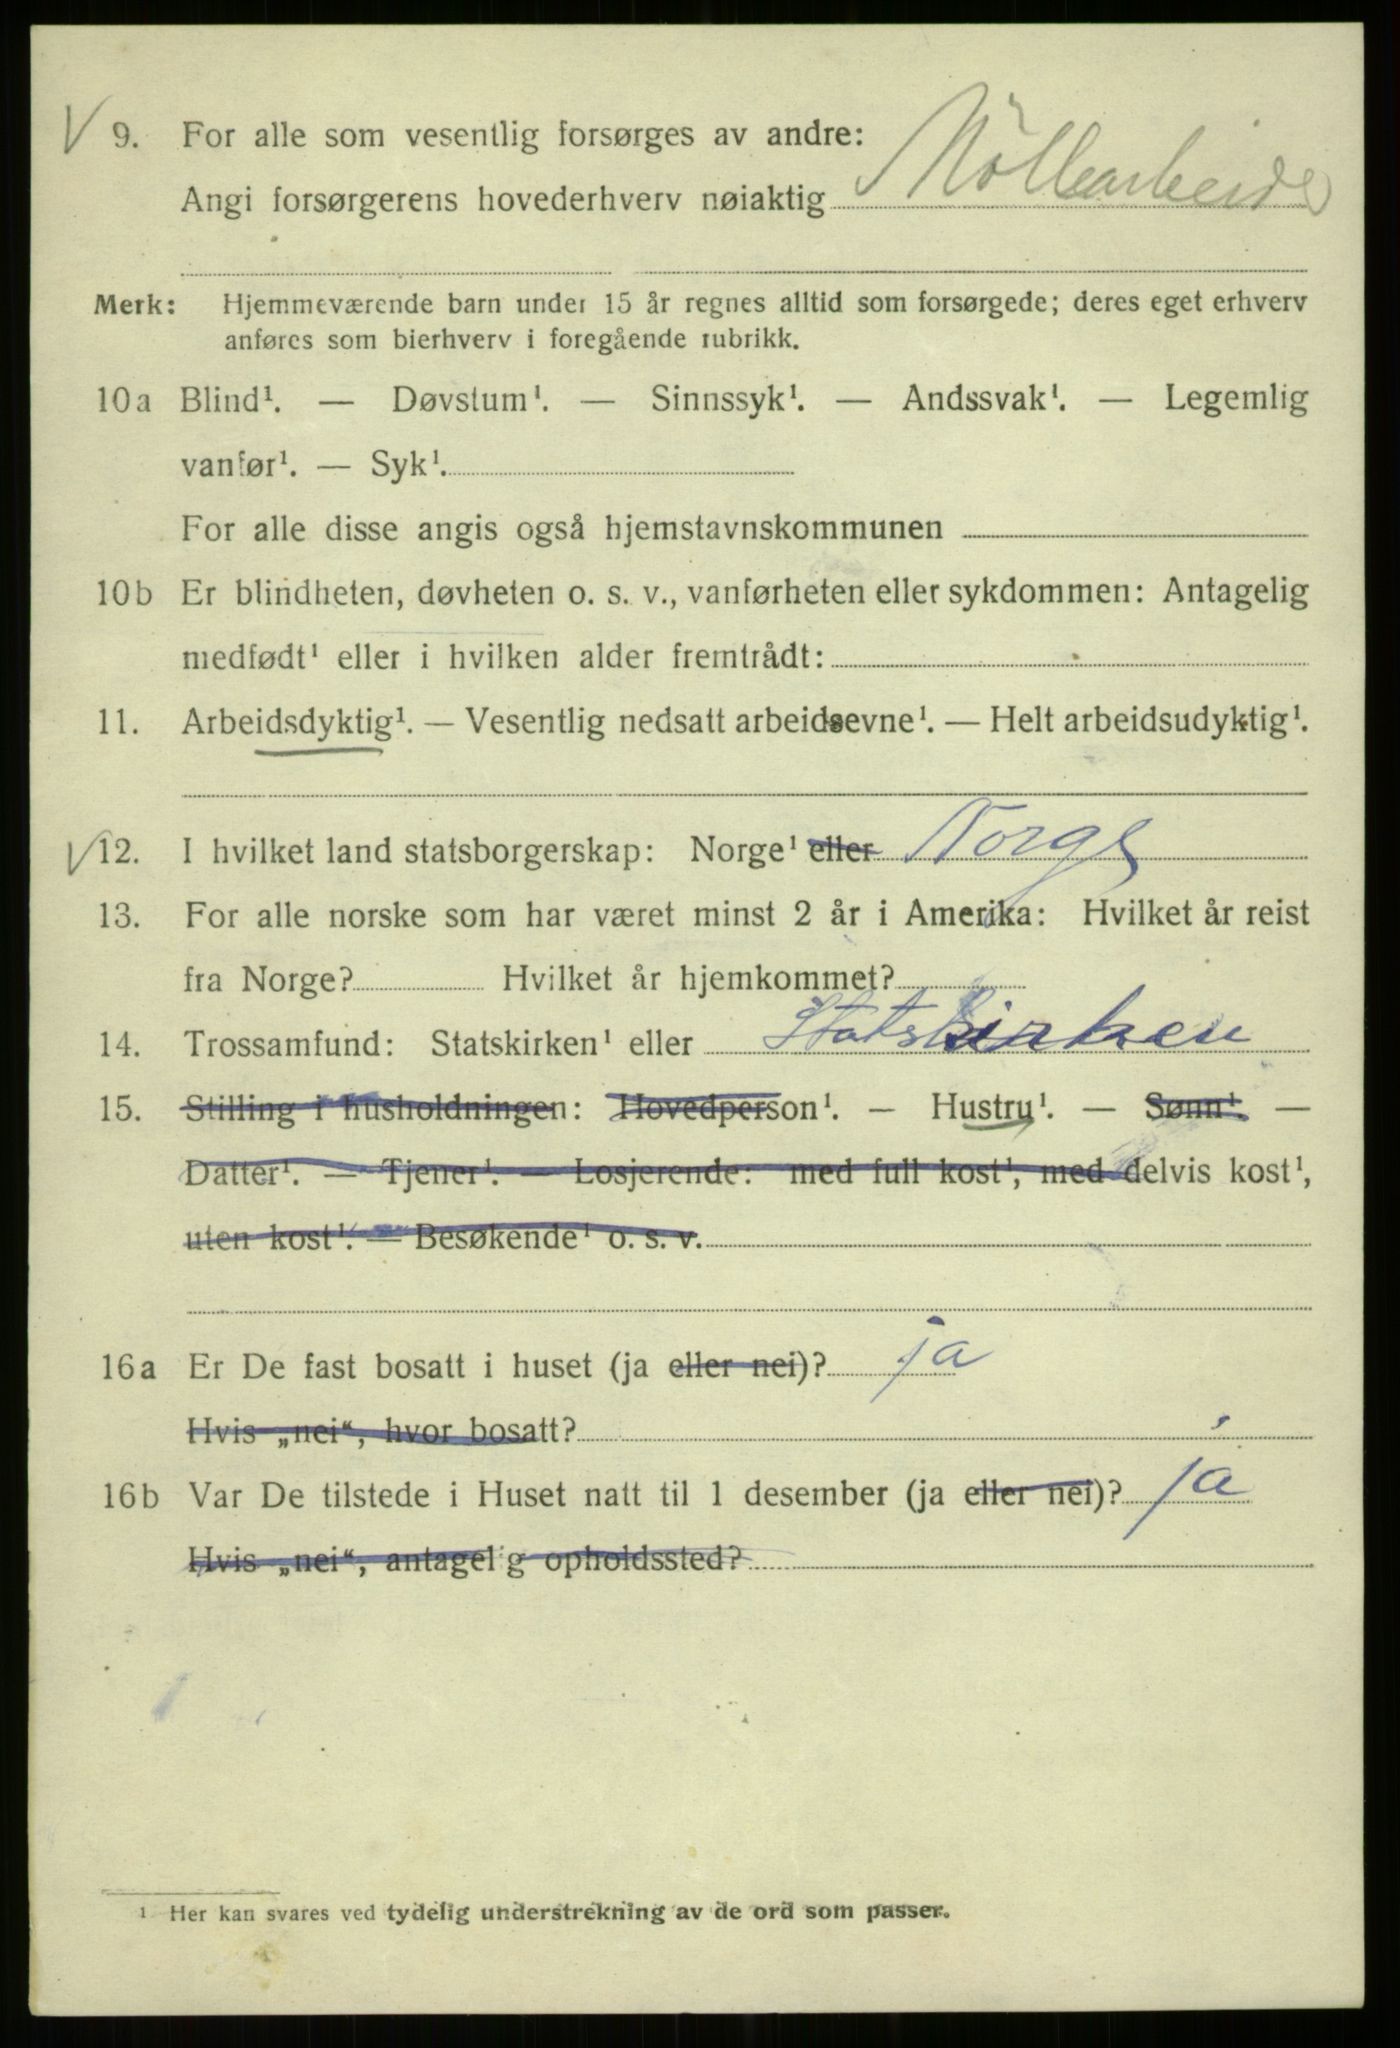 V 9. For alle som vesentlig forsørges av andre:
Angi forsørgerens hovederhverv nøiaktig Möllearbeider
Merk: Hjemmeværende barn under 15 år regnes alltid som forsørgede; deres eget erhverv
anføres som bierhverv i foregående rubrikk.
10a Blind¹. — Døvstum¹. — Sinnssyk¹. — Andssvak¹. — Legemlig
vanfør¹. — Syk¹.
For alle disse angis også hjemstavnskommunen
10b Er blindheten, døvheten o. s. v., vanførheten eller sykdommen: Antagelig
medfødt¹ eller i hvilken alder fremtrådt:
11. Arbeidsdyktig¹. — Vesentlig nedsatt arbeidsevne¹. — Helt arbeidsudyktig¹.
V 12. I hvilket land statsborgerskap: Norge¹ eller Norge
13. For alle norske som har været minst 2 år i Amerika: Hvilket år reist
fra Norge? Hvilket år hjemkommet?
14. Trossamfund: Statskirken¹ eller Statskirken
15. Stilling i husholdningen: Hovedperson¹. — Hustru¹. — Sønn¹. —
Datter¹. — Tjener¹. — Losjerende: med full kost¹, med delvis kost¹,
uten kost¹. — Besøkende¹ o. s. v.
16a Er De fast bosatt i huset (ja eller nei)? ja
Hvis „nei“, hvor bosatt?
16b Var De tilstede i Huset natt til 1 desember (ja eller nei)? ja
Hvis „nei“, antagelig opholdssted?
¹ Her kan svares ved tydelig understrekning av de ord som passer.